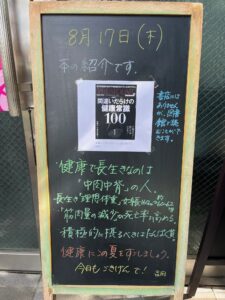 8月17日(木)
本の紹介です。
間違いだらけの
健康常識
100
書店には
ありません
が、図書
館で読
むことがで
きます。
健康で長生きなのは
「中肉中背」の人。
長生き「理想体重」
「筋肉量の減少」が死亡率を高める。
積極的に摂るべきはたんぱく質
健康にこの夏をすごしましょう。
今日もごきげんで!